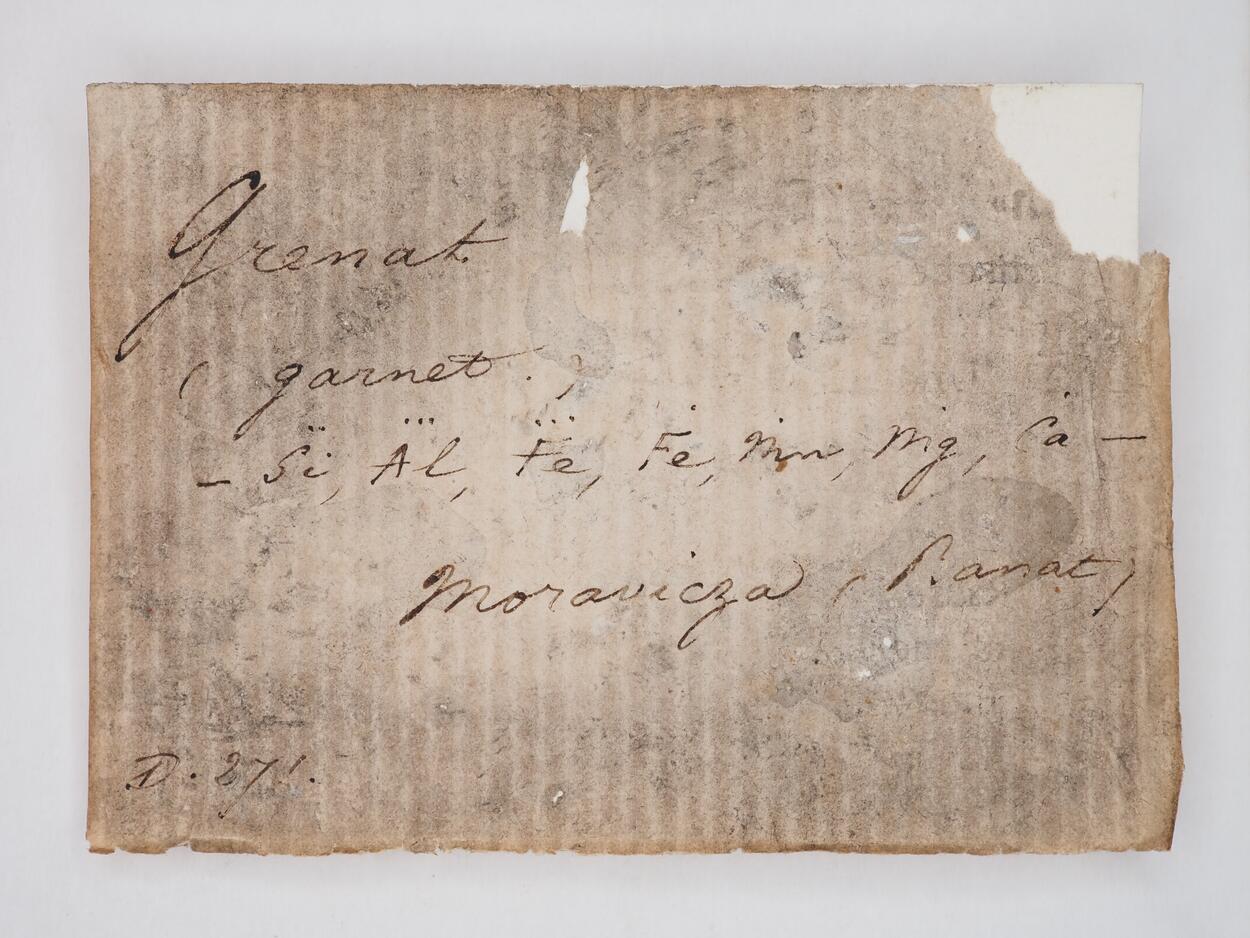 Grenat.
( garnet . )
– S̈i, A⃛l, F⃛e, Ḟe, Ṁn, Ṁg, Ċa –
Moravicza ( Banat )
D. 271.